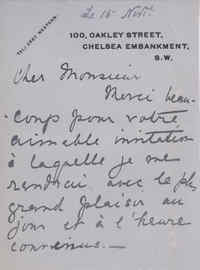 Le 15 Nov.
100, OAKLEY STREET,
CHELSEA EMBANKMENT,
S.W.
Cher Monsieur
Merci beau-
coup pour votre
aimable invitation
à laquelle je me
rendrai avec le plus
grand plaisir au
jour et à l'heure
convenus.—